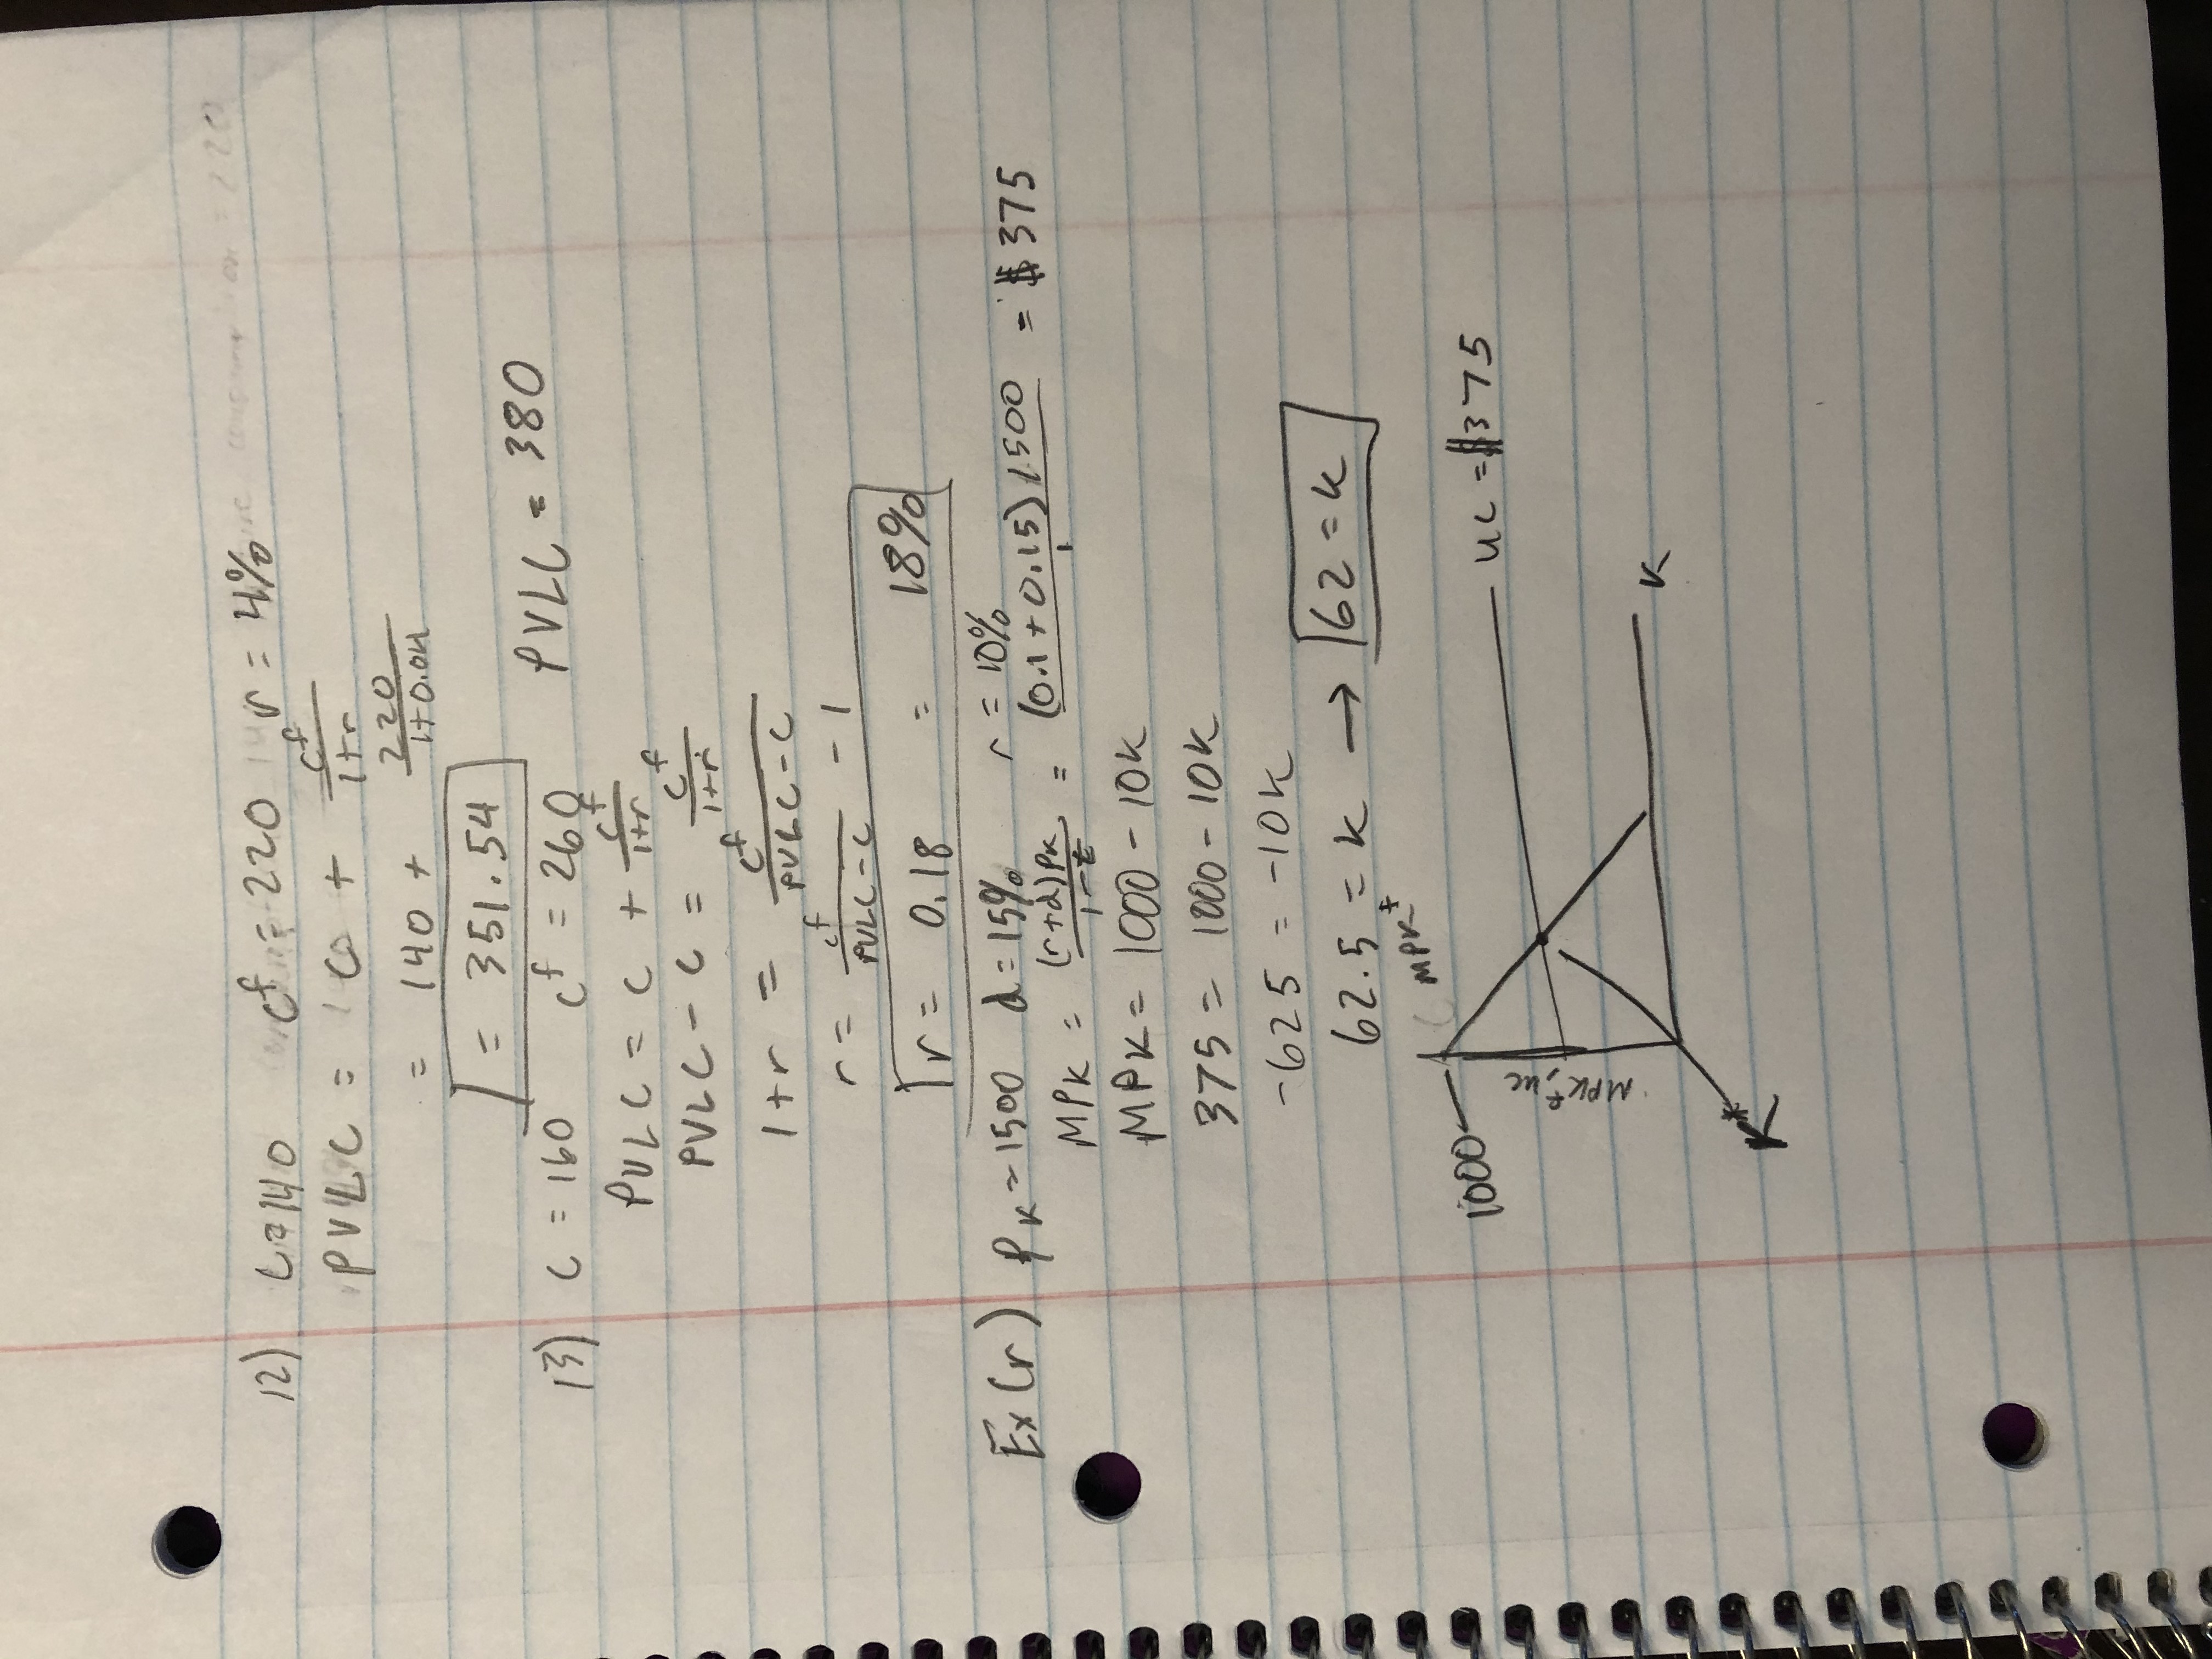 12) C=140 c^f = 220 r = 4%
PVLC = C + c^f/(1+r)
= 140 + 220/(1+0.04)
= 351.54
13) C = 160 c^f = 260 PVLC = 380
PVLC = C + c^f/(1+r)
PVLC - C = c^f/(1+r)
1+r = c^f/(PVLC - C)
r = c^f/(PVLC - C) - 1
r = 0.18 = 18%
Ex(r) PK = 1500 d = 15% r = 10%
MPK = (r+d)PK/(1-t) = (0.1+0.15)1500/1 = $375
MPK = 1000 - 10K
375 = 1000 - 10K
-625 = -10K
62.5 = K → 62 = K
MPK^f
1000
UC = $375
MPK^f, uc
K
K*